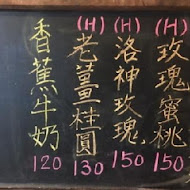 香蕉牛奶 120
(H) 老薑桂圓 130
(H) 洛神玫瑰 150
(H) 玫瑰蜜桃 150